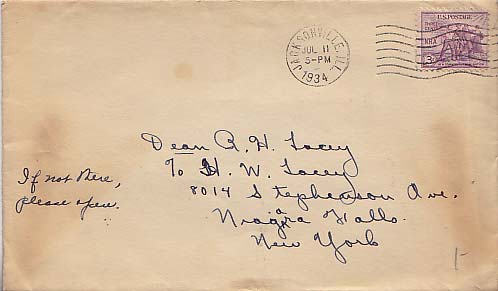 JACKSONVILLE, ILL.
JUL 11
5-PM
1934
U.S. POSTAGE
NRA
3¢
Dean R. H. Lacey
To H. W. Lacey
8014 Stephenson Ave.
Niagara Falls.
New York
If not there,
please open.